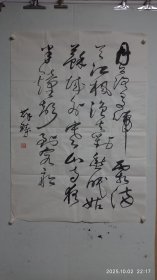 月落乌啼霜满
天江枫渔火对愁眠姑
苏城外寒山寺夜
半钟声到客船
2025/10/02 02:17